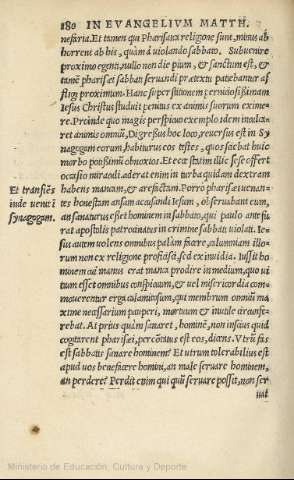 180 IN EVANGELIVM MATTH.
nefaria. Et tamen qui Pharisaica religione sunt, minus ab
horrent ab his, quàm à violando sabbato. Subuenire
proximo egenti, nullo non die pium, & sanctum est, &
tamẽ pharisæi sabbati seruandi prætextu patebantur af
fligi proximum. Hanc superstitionem perniciosissimam
Iesus Christus studuit penitus ex animis suorum exime-
re. Proinde quo magis perspicuo exemplo idem inculca-
ret animis omniũ, Digressus hoc loco, reuersus est in Sy
nagogam eorum, habiturus eos testes, quos sciebat huic
morbo potissimũ obnoxios. Et ecce statim illic sese offert
occasio miraculi. aderat enim in turba quidam dextram
Et transiẽs
habens manum, & arefactam. Porro pharisæi uenan-
inde uenit ĩ
tes honestam ansam accusandi Iesum, obseruabant eum,
synagogam.
an sanaturus esset hominem in sabbato, qui paulo ante fue
rat apostolis patrocinatus in crimine sabbati uiolati. Ie-
sus autem uolens omnibus palàm facere, calumniam illo-
rum non ex religione profiscisci, sed ex inuidia. Iussit ho
minem cui manus erat manca prodire in medium, quo ui
tum esset omnibus conspicuum, & uel misericordia com-
mouerentur erga calamitosum, qui membrum omniũ ma
xime necessarium pauperi, mortuum & inutile circunfe-
rebat. At prius quàm sanaret, hominẽ, non inscius quid
cogitarent pharisæi, percõtatus est eos, dicens. Vtrũ fas
est sabbatis sanare hominem? Et utrum tolerabilius est
apud uos benefacere homini, an male seruare hominem,
an perdere? Perdit enim qui quũ seruare possit, non ser
uat
Ministerio de Educación, Cultura y Deporte